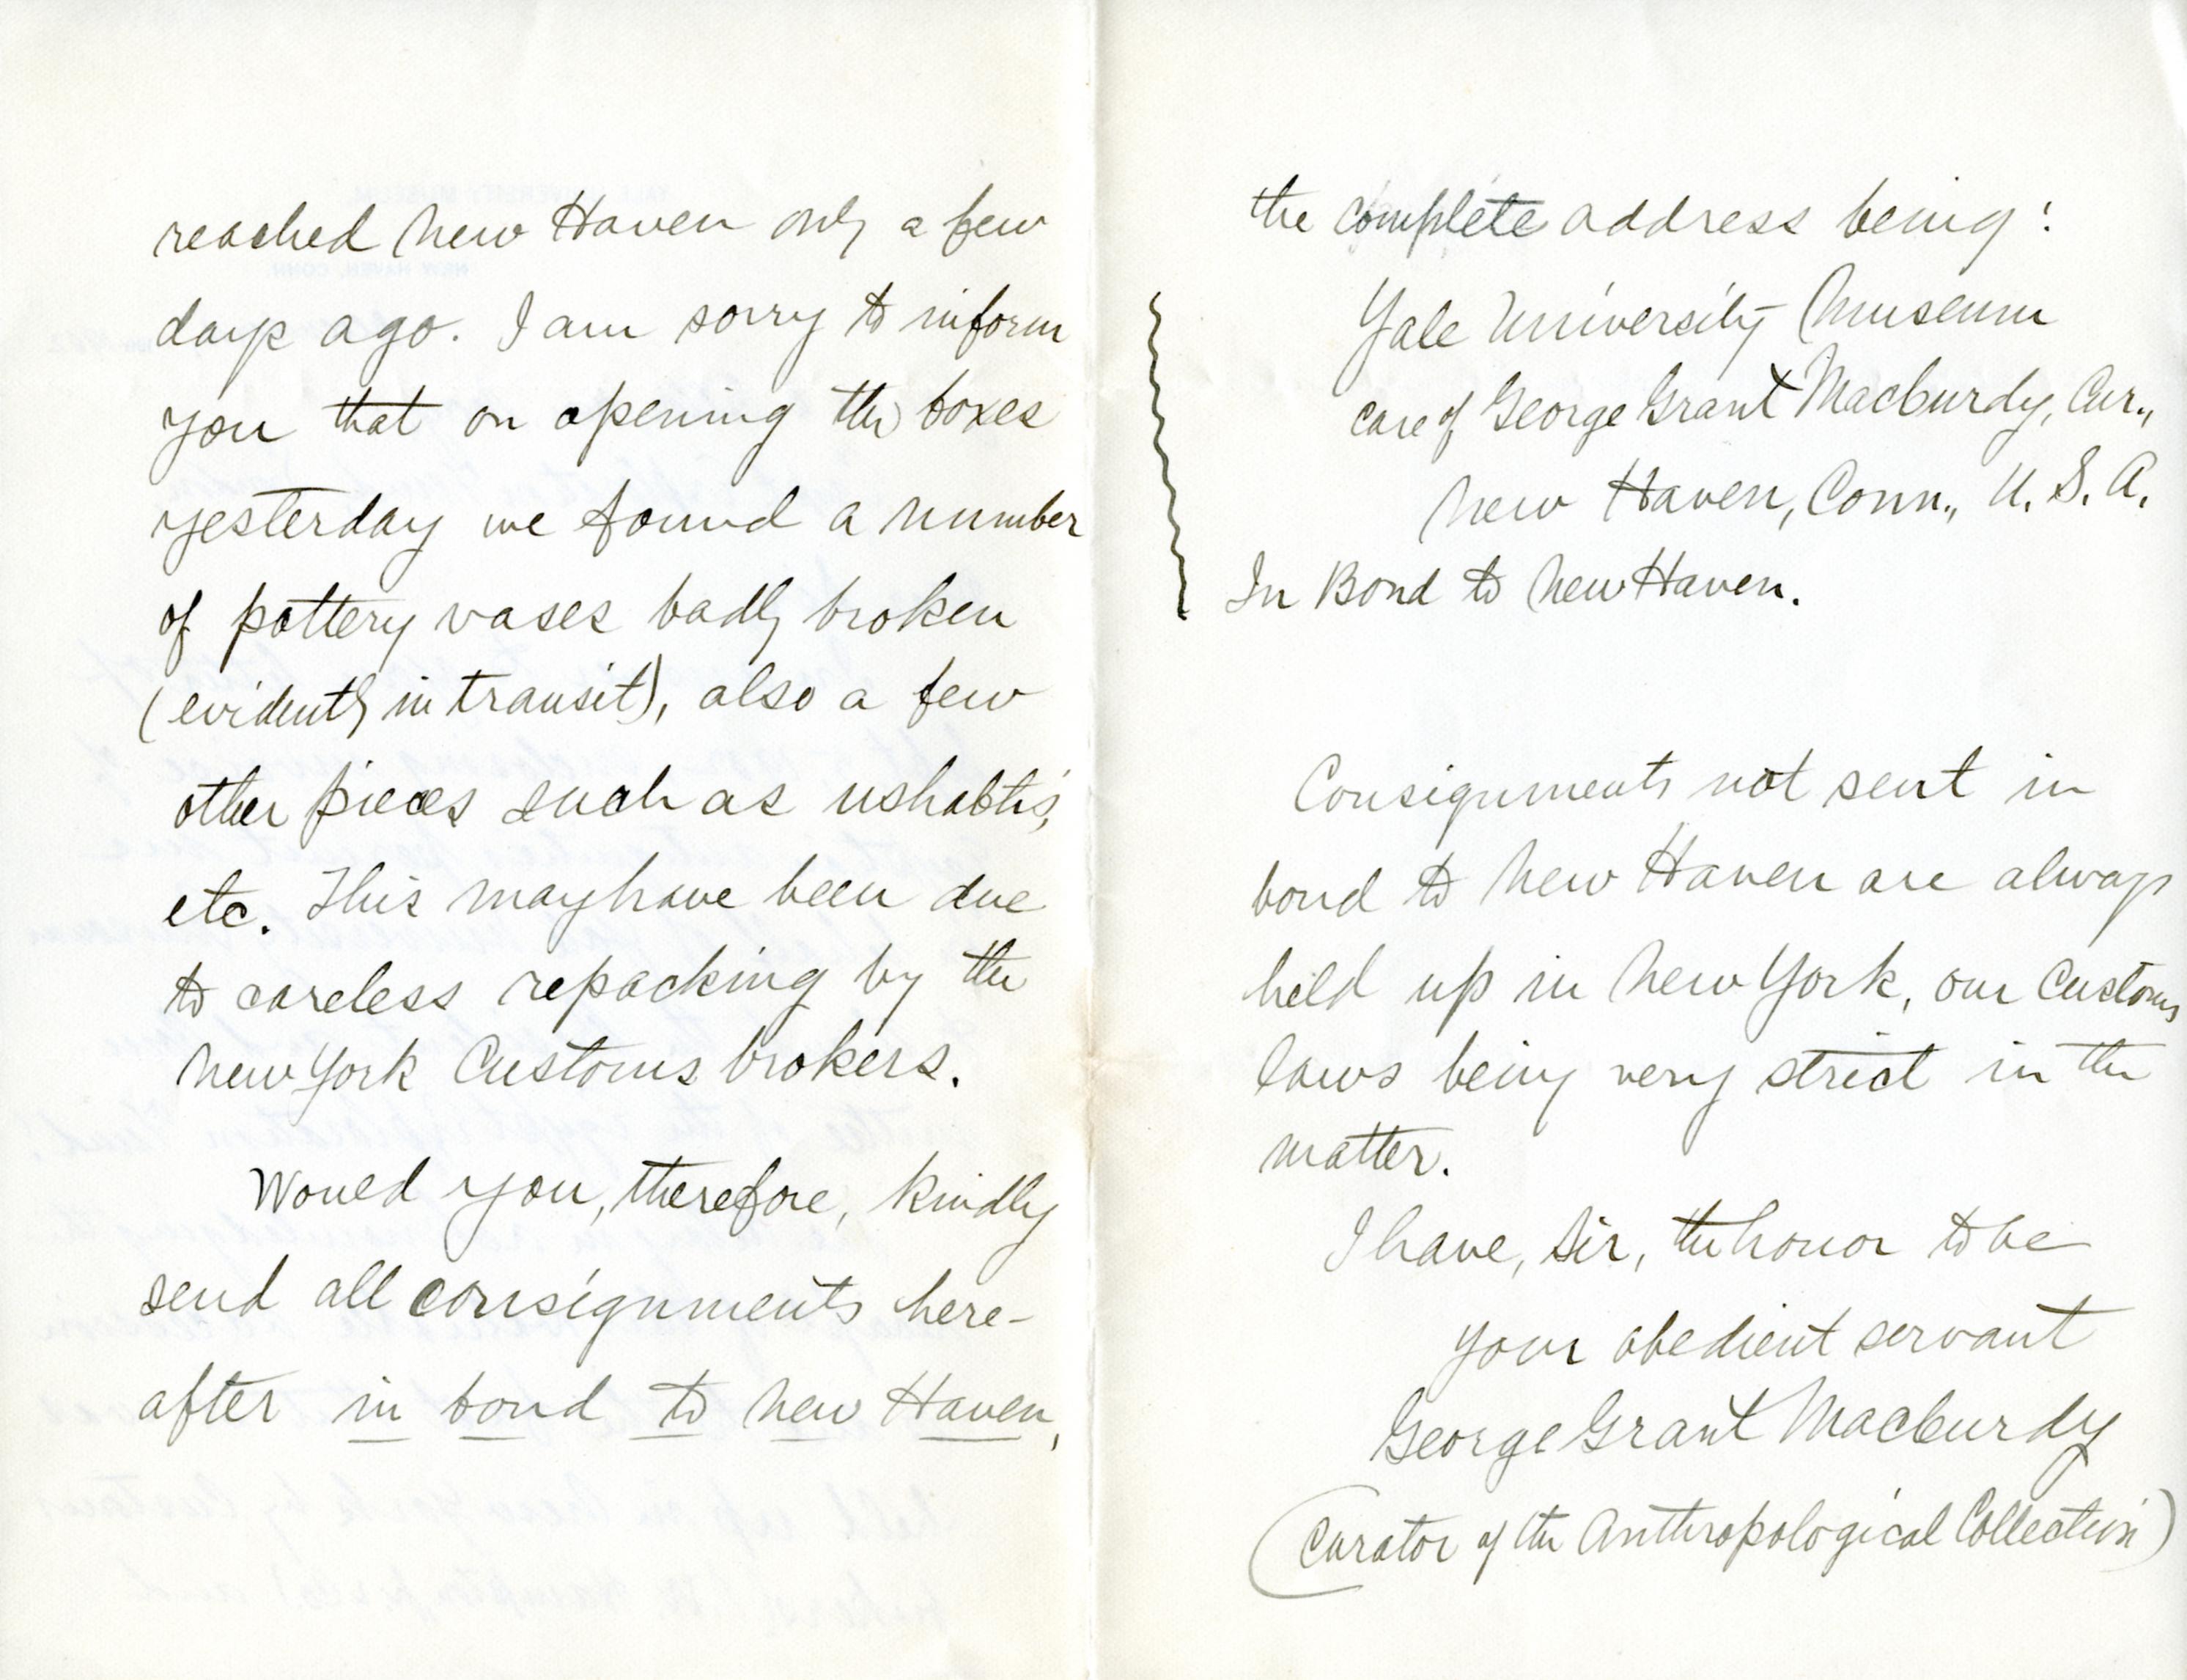 reached New Haven only a few
days ago. I am sorry to inform
you that on opening the boxes
yesterday we found a number
of pottery vases badly broken
(evidently in transit), also a few
other pieces such as ushabtis,
etc. This may have been due
to careless repacking by the
New York Customs brokers.
Would you, therefore, kindly
send all consignments here-
after in bond to New Haven,
the complete address being:
Yale University Museum
care of George Grant MacCurdy, Cur.,
New Haven, Conn., U. S. A.
In Bond to New Haven.
Consignments not sent in
bond to New Haven are always
held up in New York, our Customs
laws being very strict in the
matter.
I have, Sir, the honor to be
your obedient servant
George Grant MacCurdy
(Curator of the Anthropological Collection)